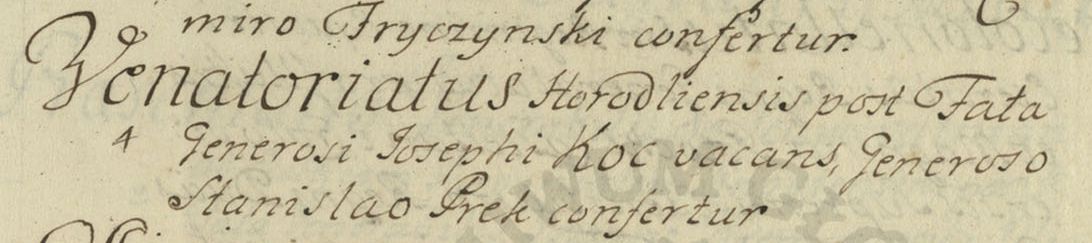 miro Fryczynski confertur.
Venatoriatus Horodliensis post Fata
4 Generosi Josephi Koc vacans, Generoso
Stanislao Prek confertur